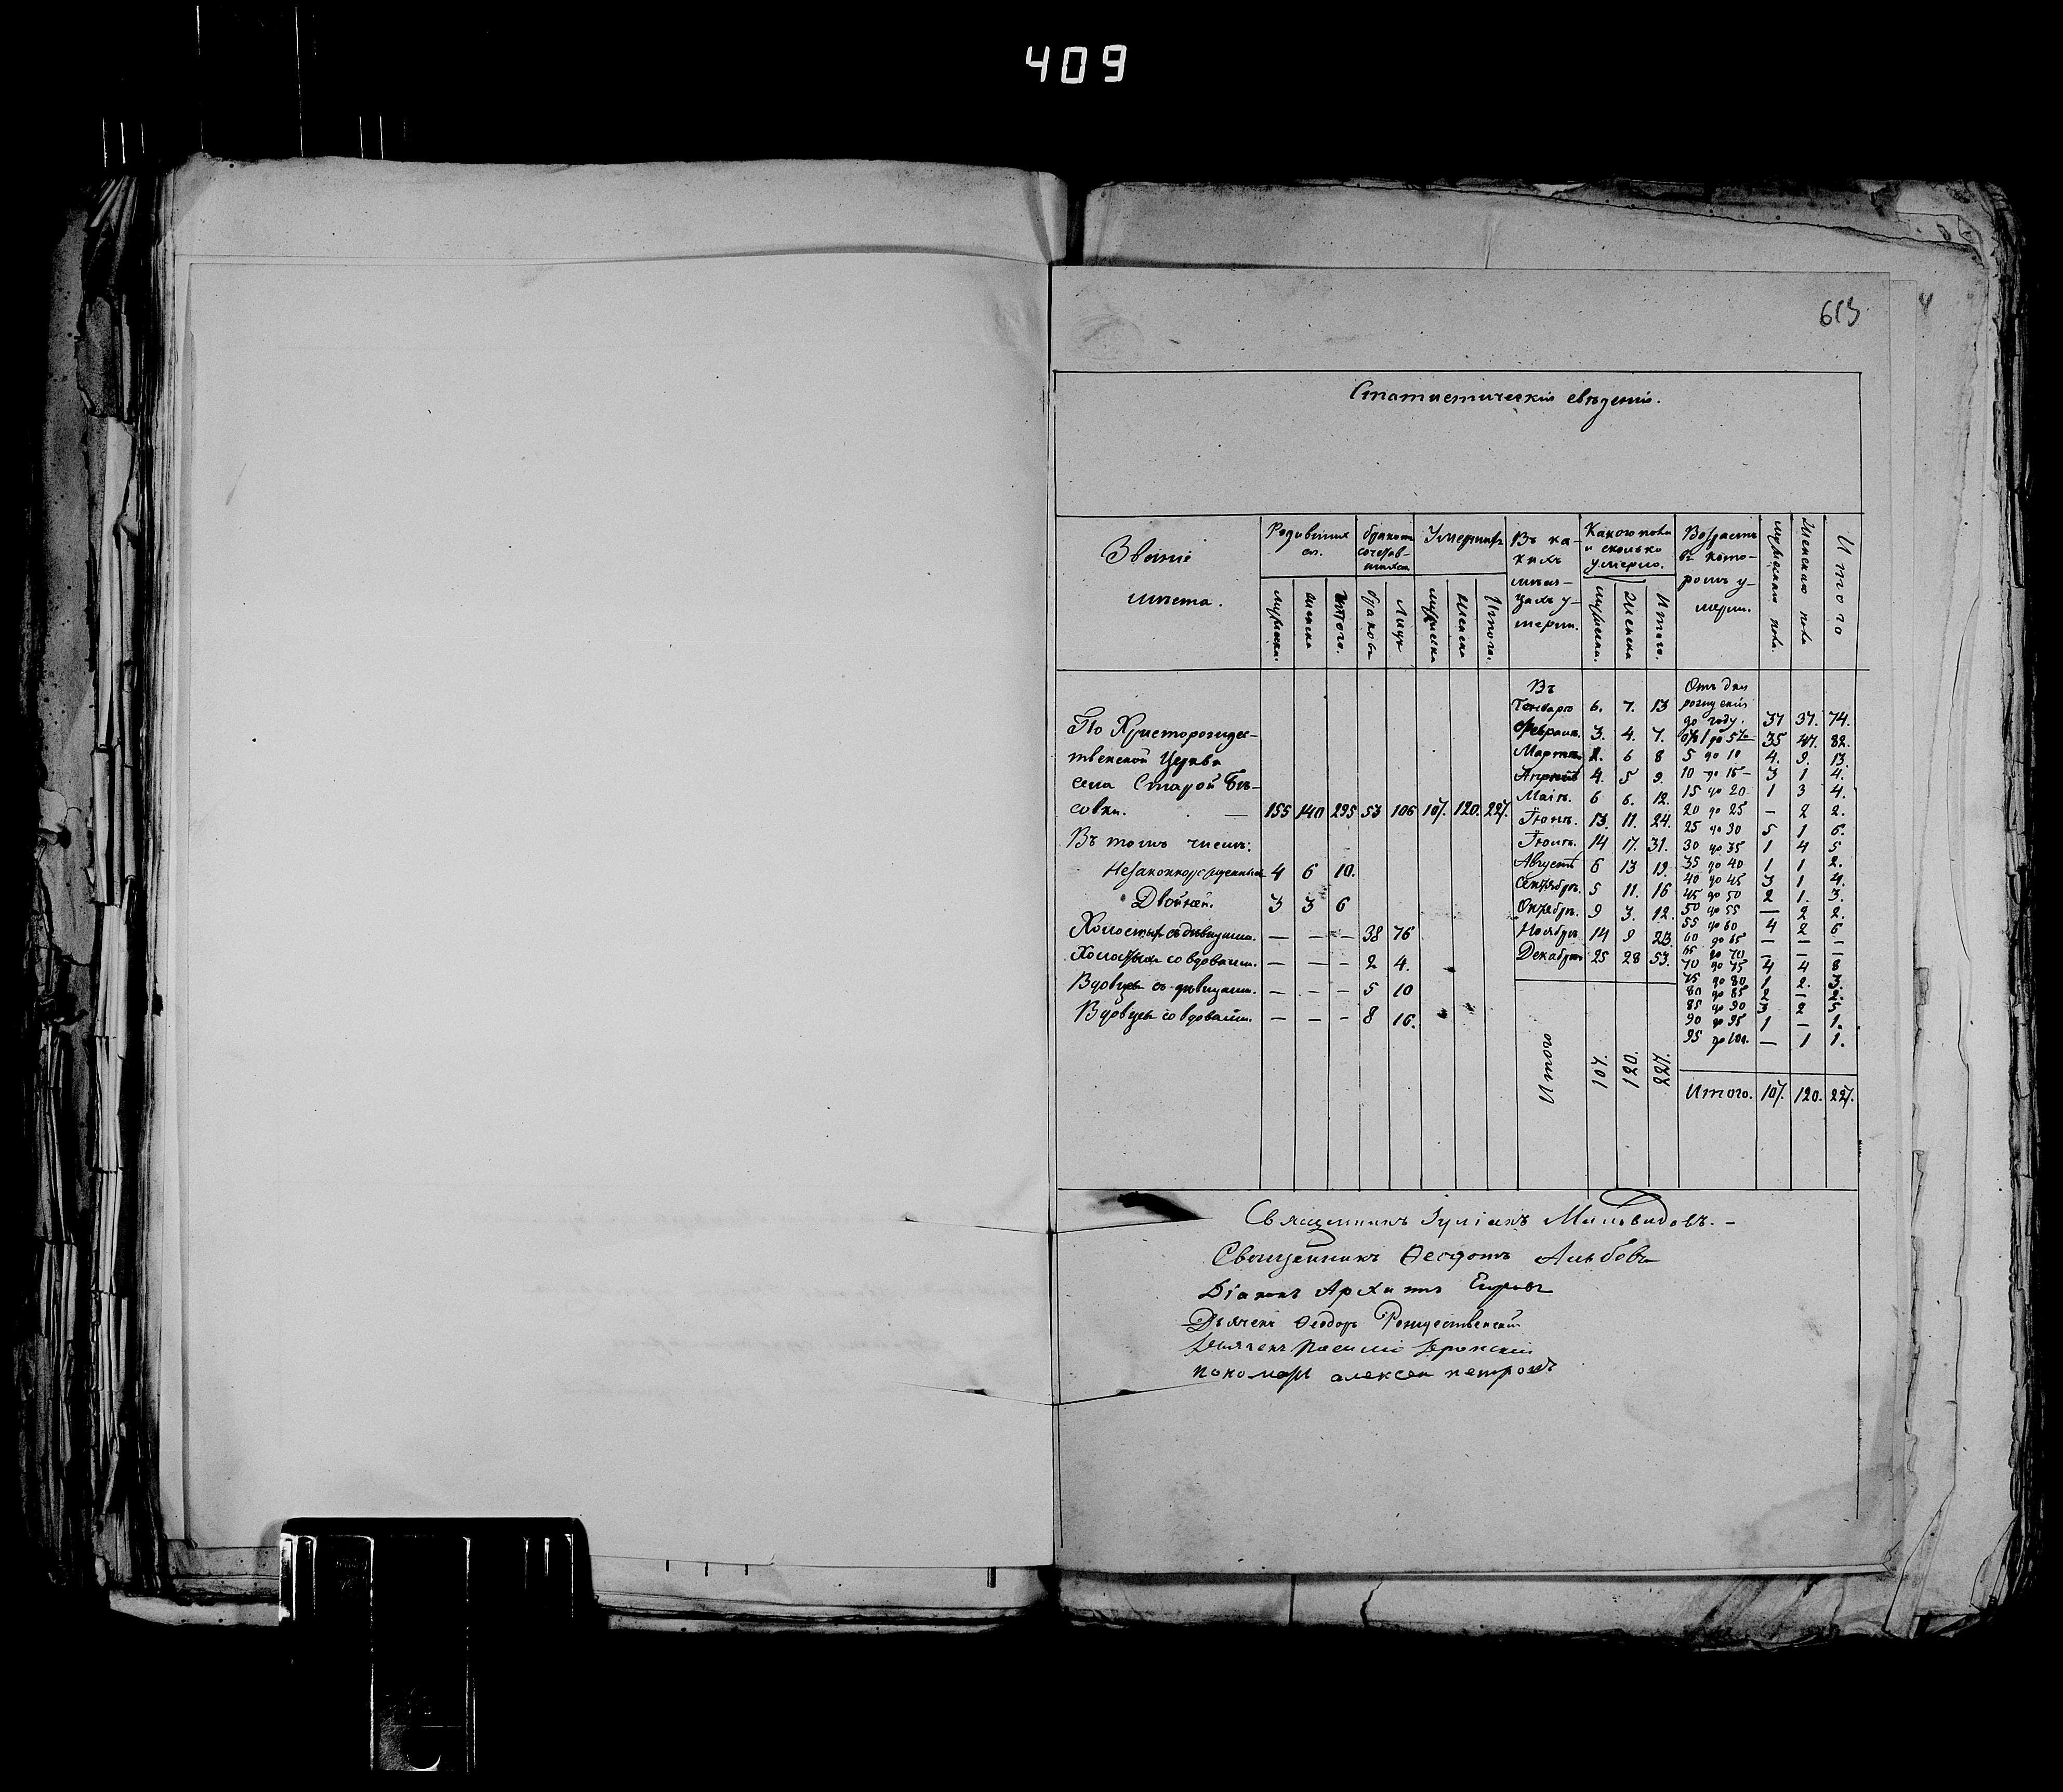 409
613
Статистическія свѣденія.
Званіе мѣста.
Родившихся.
бракомъ сочетавшихся
Умершихъ
Въ какихъ мѣсяцахъ умерли.
Какого пола и сколько умерло.
Возрастъ въ которомъ умерли.
мужескаго пола.
Женскаго пола
Итого
мужеска.
женска
Итого.
браковъ
Лицъ
мужеска
женска
Итого.
мужеска.
Женска
Итого.
По Христорождественской Церкви
села Старой Бѣсовки. — 155 140 295 53 106 107. 120. 227.
Въ томъ числѣ:
Незаконнорожденныхъ 4 6 10.
Двойней. 3 3 6
Холостыхъ съ дѣвицами. — — — 38 76
Холостыхъ со вдовами. — — — 2 4.
Вдовцевъ съ дѣвицами. — — — 5 10
Вдовцевъ со вдовами. — — — 8 16.
Въ
Генварѣ 6. 7. 13
Февралѣ. 3. 4. 7.
Мартѣ. 2. 6 8
Апрѣлѣ 4. 5 9.
Маіѣ. 6 6. 12.
Іюнѣ. 13. 11. 24.
Іюлѣ. 14 17. 31.
Августѣ 6 13 19.
Сентябрѣ. 5 11. 16
Октябрѣ. 9 3. 12.
Ноябрѣ 14 9 23.
Декабрѣ 25 28 53.
Итого 107. 120. 227.
Отъ дня
рожденія
до году. 37 37. 74.
отъ 1 до 5 35 47. 82.
5 до 10 4. 9. 13.
10 до 15 — 3 1 4.
15 до 20 1 3 4.
20 до 25 — 2 2.
25 до 30 5 1 6.
30 до 35 1 4 5
35 до 40 1 1 2.
40 до 45 3 1 4.
45 до 50 2 1. 3.
50 до 55 — 2 2.
55 до 60 4 2 6
60 до 65 — — —
65 до 70 — — —
70 до 75 4 4 8
75 до 80 1 2. 3.
80 до 85 2 — 2.
85 до 90 3 2 5.
90 до 95 1 — 1.
95 до 100. — 1 1.
Итого. 107. 120. 227.
Священникъ Іуліанъ Миловидовъ. —
Священникъ Ѳеодотъ Альбовъ
Діаконъ Архипъ
Дьячекъ Ѳеодоръ Рождественскій
Дьячекъ Василій
пономарь алексей петровъ